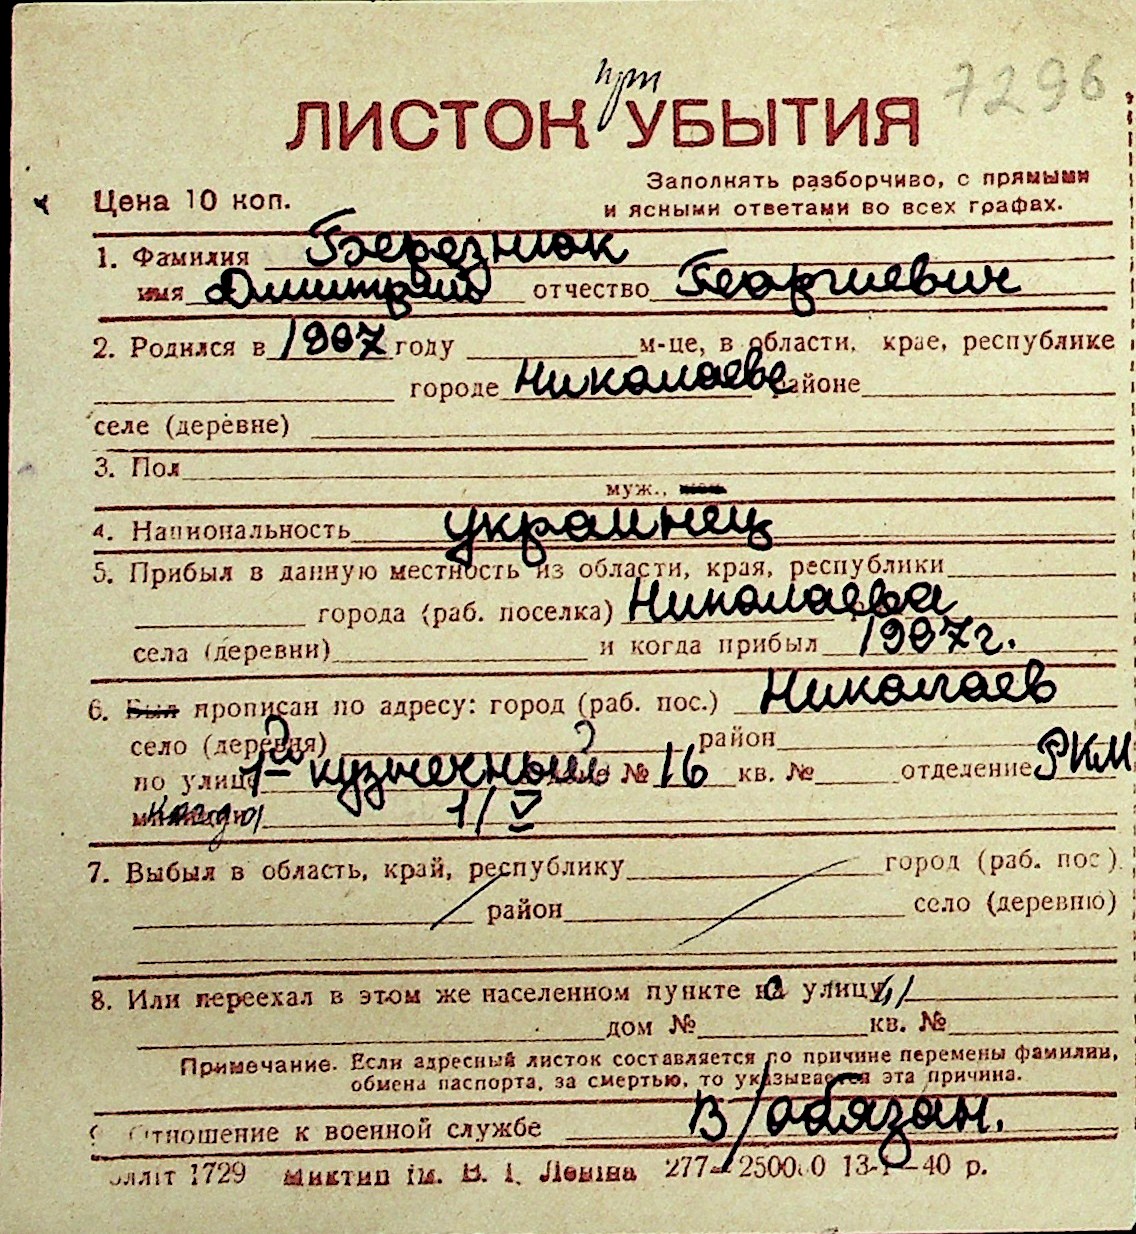 при
7296
ЛИСТОК УБЫТИЯ
Заполнять разборчиво, с прямыми
Цена 10 коп.
и ясными ответами во всех графах.
1. Фамилия Березнюк
имя Дмитрий отчество Георгиевич
2. Родился в 1907 году м-це, в области, крае, республике
городе Николаеве районе
селе (деревне)
3. Пол
муж.,
4. Национальность украинец
5. Прибыл в данную местность из области, края, республики
города (раб. поселка) Николаева
села (деревни) и когда прибыл 1907 г.
6. Был прописан по адресу: город (раб. пос.) Николаев
село (деревня) район
по улице 1 кузнечный № 16 кв. № отделение РКМ
когда 1/V
7. Выбыл в область, край, республику город (раб. пос.)
район село (деревню)
8. Или переехал в этом же населенном пункте на улицу
дом № кв. №
Примечание. Если адресный листок составляется по причине перемены фамилии,
обмена паспорта, за смертью, то указывается эта причина.
Отношение к военной службе В/обязан.
1729 Миктип ім. В. І. Леніна 277— 40 р.